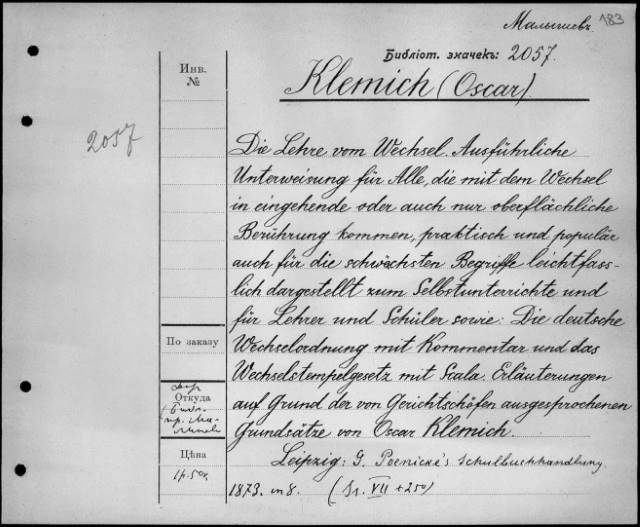 Малышевъ 183
Библіот. значекъ: 2057.
Инв. №
Klemich (Oscar)
2057
Die Lehre vom Wechsel. Ausführliche
Unterweisung für Alle, die mit dem Wechsel
in eingehende oder auch nur oberflächliche
Berührung kommen, praktisch und populär
auch für die schwächsten Begriffe leichtfass-
lich dargestellt zum Selbstunterrichte und
für Lehrer und Schüler sowie: Die deutsche
По заказу
Wechselordnung mit Kommentar und das
Wechselstempelgesetz mit Scala. Erläuterungen
Откуда
auf Grund der von Gerichtschöfen ausgesprochenen
Grundsätze von Oscar Klemich.
Цѣна
Leipzig: G. Poenicke's Schulbuchhandlung.
1873. in 8. (Sr. VII + 250)